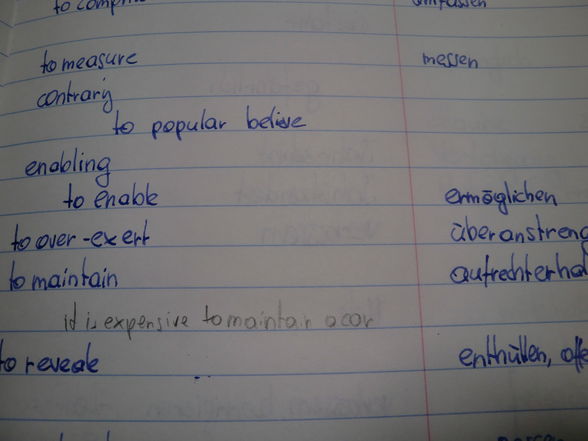 to measure messen
contrary
to popular belive
enabling
to enable ermöglichen
to over-exert überanstreng
to maintain aufrechterhal
it is expensive to maintain a car
to reveale enthüllen, offe